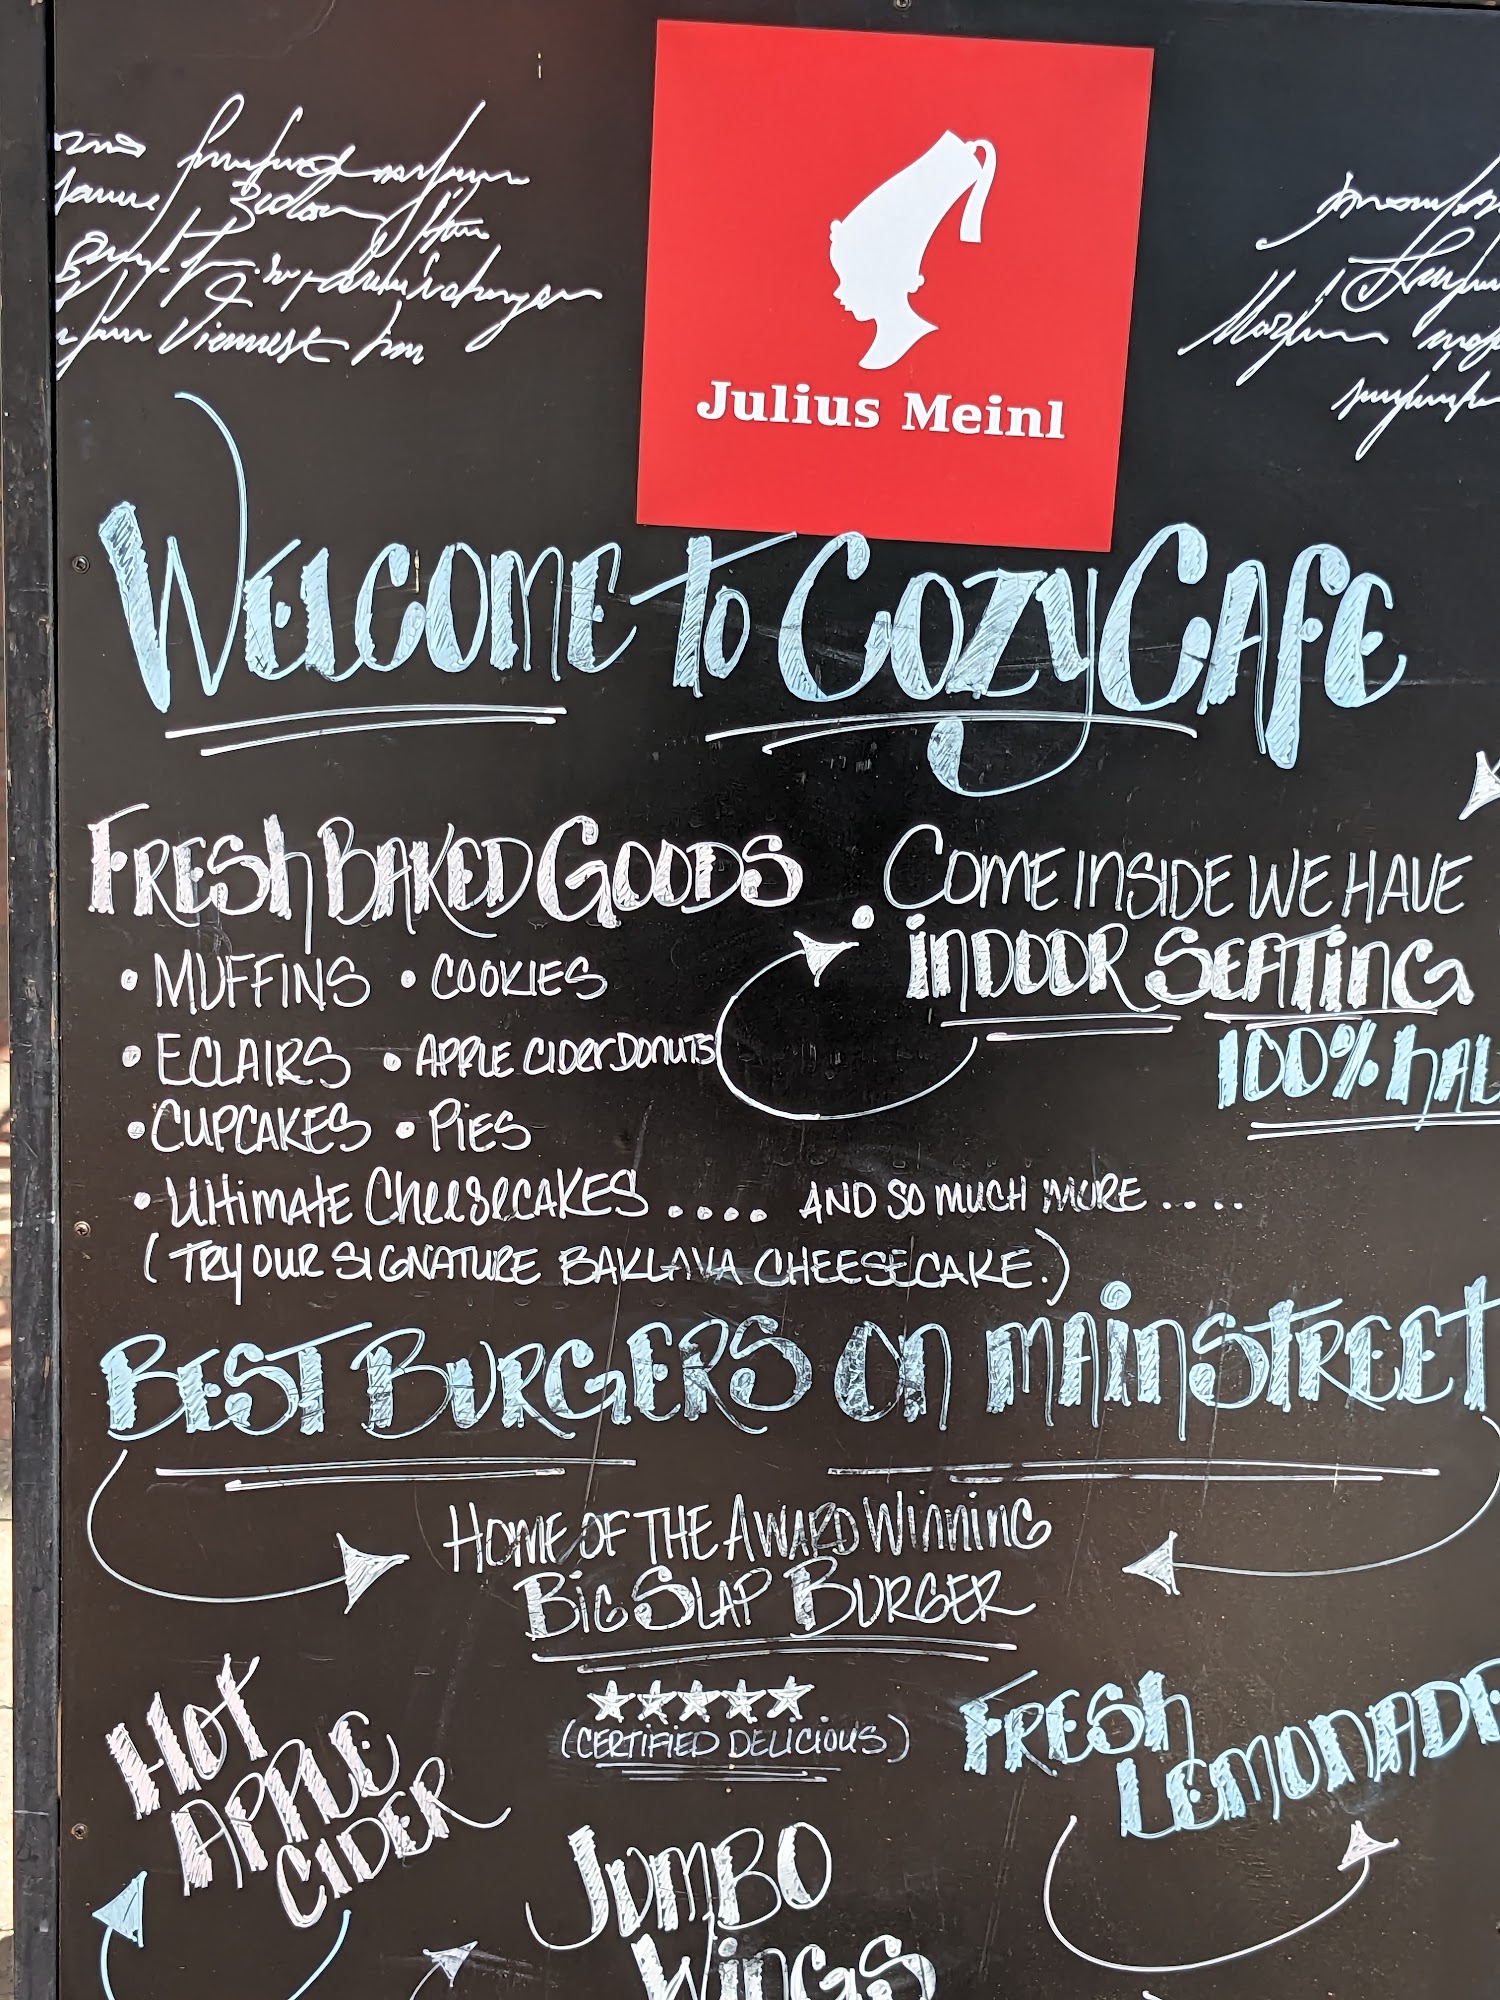 Julius Meinl
Viennese
WELCOME TO COZY CAFE
FRESH BAKED GOODS
• MUFFINS • COOKIES
• ECLAIRS • APPLE CIDER DONUTS
• CUPCAKES • PIES
• ULTIMATE CHEESECAKES .... AND SO MUCH MORE ....
(TRY OUR SIGNATURE BAKLAVA CHEESECAKE.)
COME INSIDE WE HAVE
INDOOR SEATING
100% HAL
BEST BURGERS ON MAINSTREET
HOME OF THE AWARD WINNING
BIG SLAP BURGER
★★★★★
(CERTIFIED DELICIOUS)
HOT
APPLE
CIDER
FRESH
LEMONADE
JUMBO
WINGS